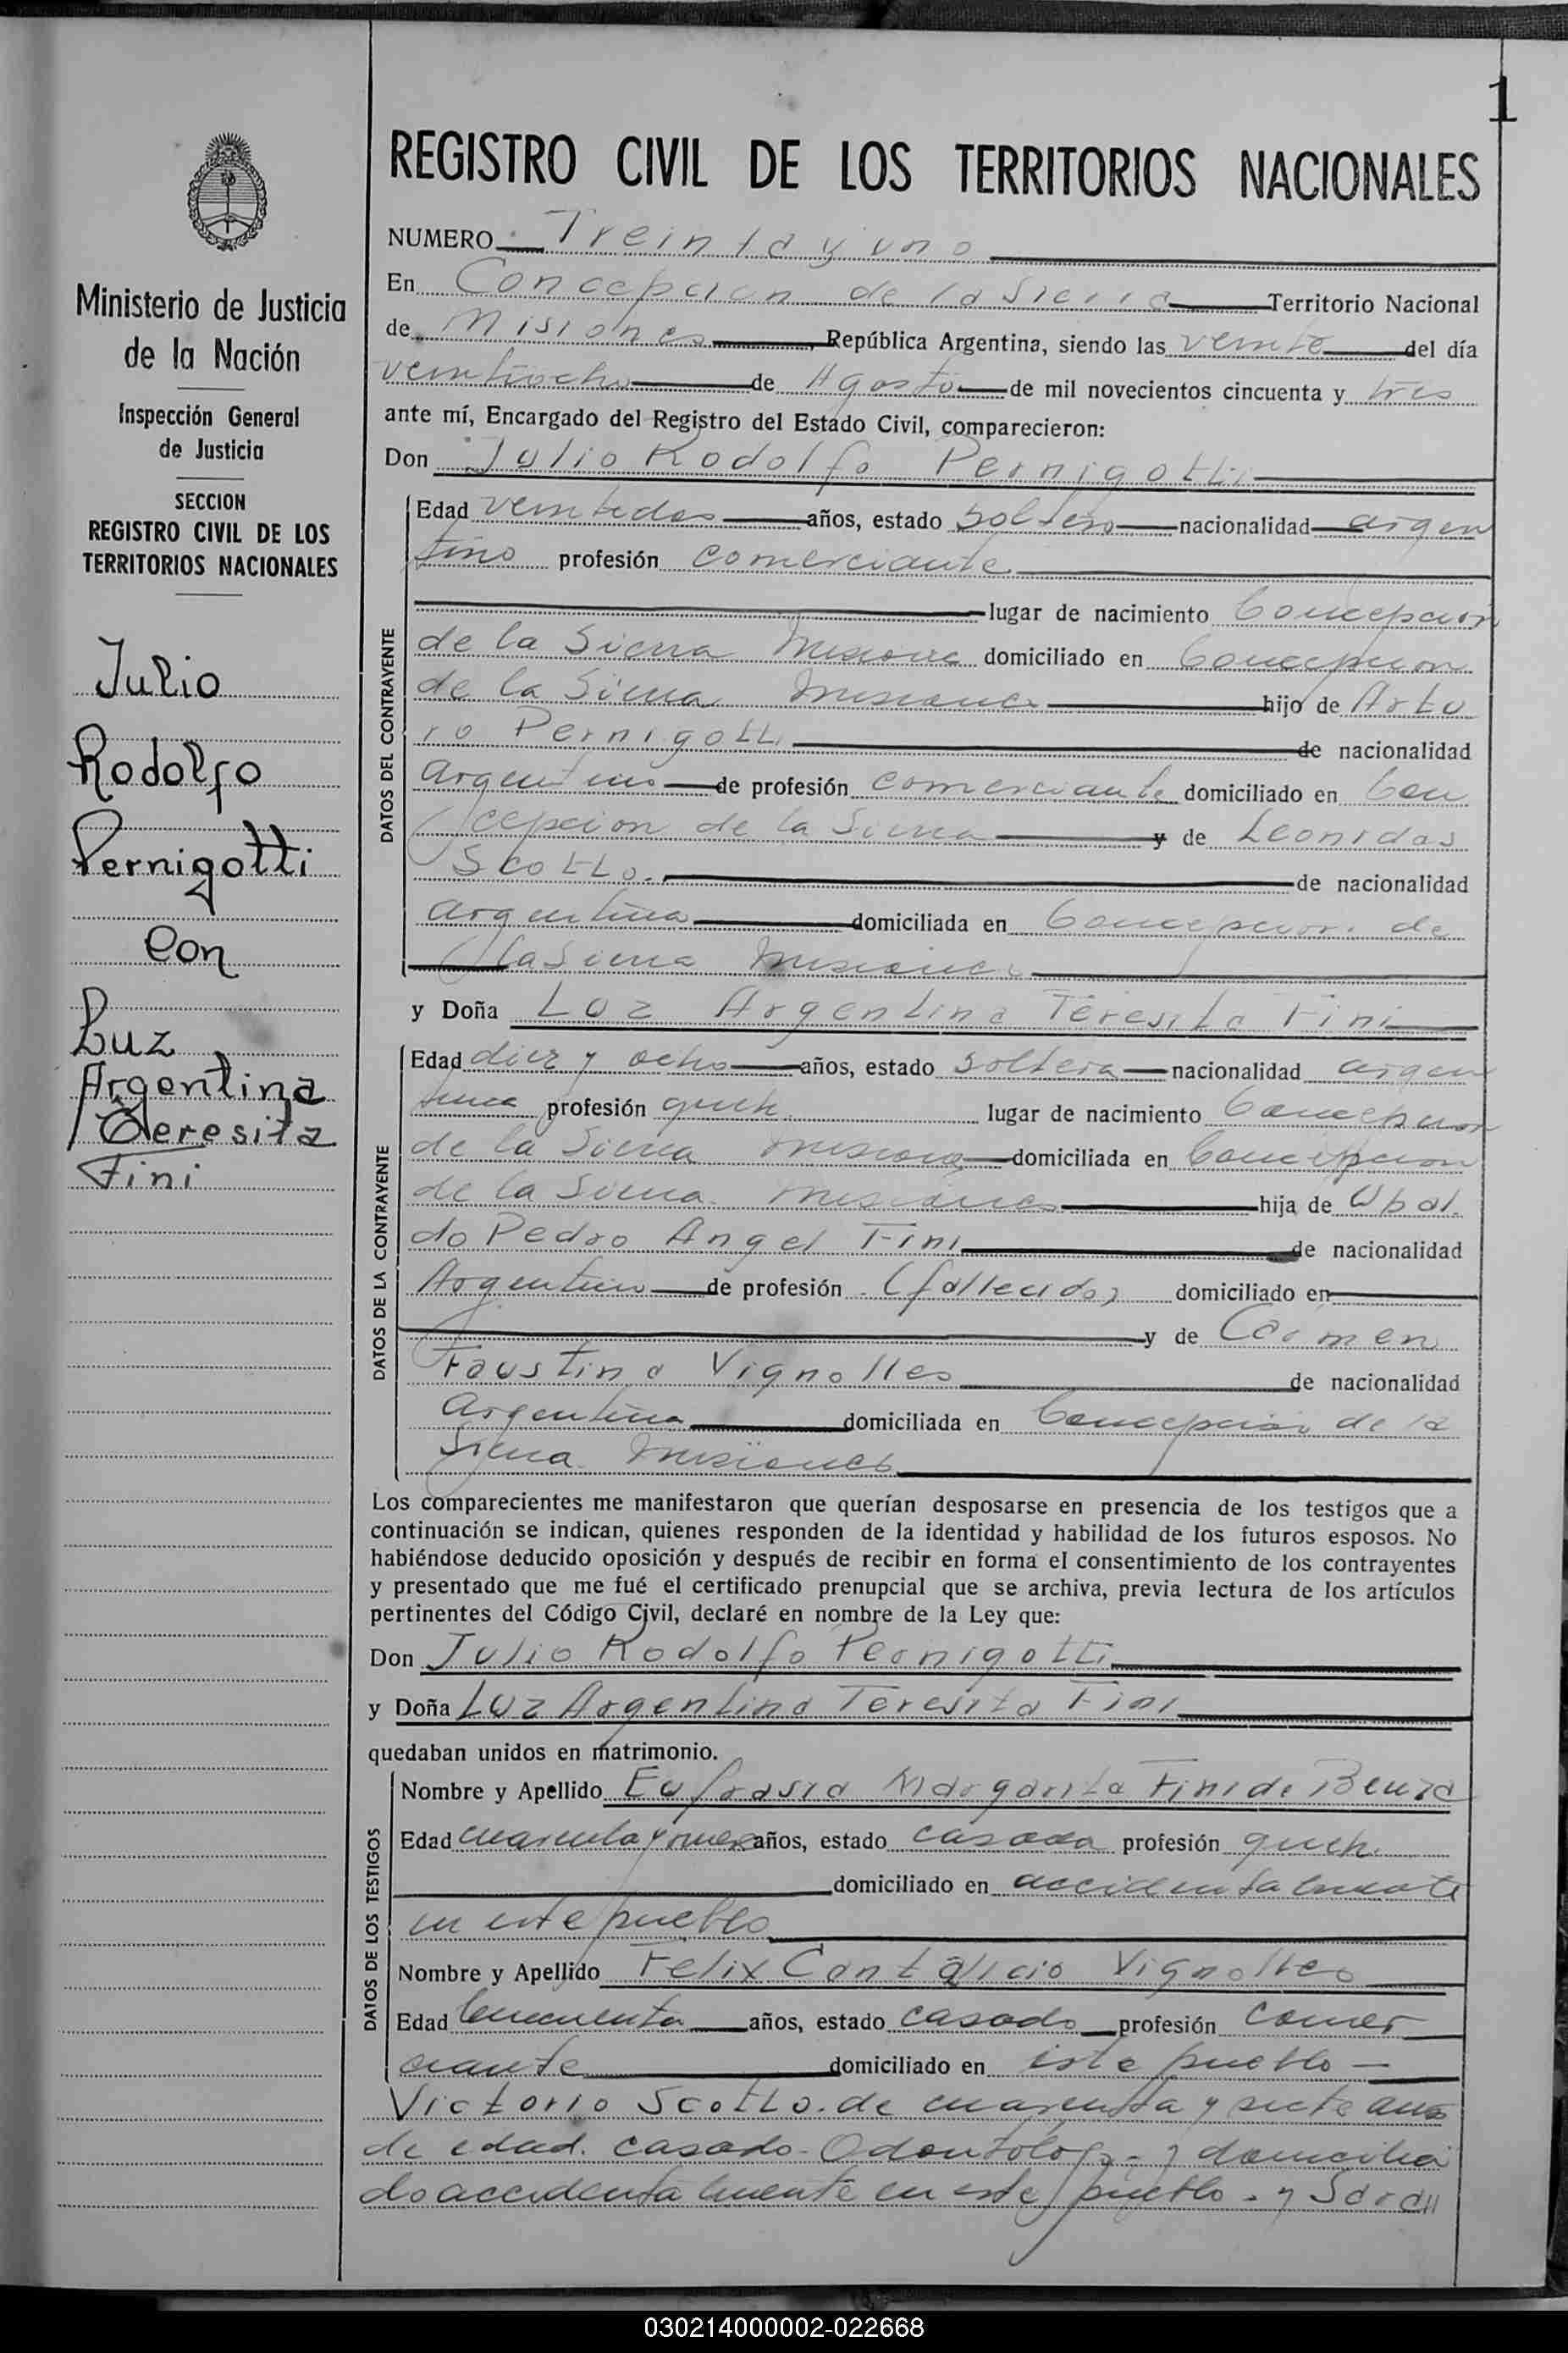 1
REGISTRO CIVIL DE LOS TERRITORIOS NACIONALES
Ministerio de Justicia
de la Nación
Inspección General
de Justicia
SECCION
REGISTRO CIVIL DE LOS
TERRITORIOS NACIONALES
Julio
Rodolfo
Pernigotti
con
Luz
Argentina
Teresita
Fini
NUMERO Treinta y uno
En Concepcion de la Sierra Territorio Nacional
de Misiones, República Argentina, siendo las veinte del día
veintiocho de Agosto de mil novecientos cincuenta y tres
ante mí, Encargado del Registro del Estado Civil, comparecieron:
Don Julio Rodolfo Pernigotti
DATOS DEL CONTRAYENTE
Edad veintedos años, estado soltero nacionalidad argen
tino profesión comerciante
lugar de nacimiento Concepcion
de la Sierra Misiones domiciliado en Concepcion
de la Sierra Misiones hijo de Artu
ro Pernigotti de nacionalidad
argentino de profesión comerciante domiciliado en Con
cepcion de la Sierra y de Leonidas
Scotto. de nacionalidad
argentina domiciliada en Concepcion de
la Sierra Misiones
y Doña Luz Argentina Teresita Fini
DATOS DE LA CONTRAYENTE
Edad diez y ocho años, estado soltera nacionalidad argen
tina profesión lugar de nacimiento Concepcion
de la Sierra Misiones domiciliada en Concepcion
de la Sierra. Misiones hija de Ubal.
do Pedro Angel Fini de nacionalidad
Argentino de profesión (fallecido) domiciliado en
y de Carmen
Faustina Vignolles de nacionalidad
Argentina domiciliada en Concepcion de la
Sierra Misiones
Los comparecientes me manifestaron que querían desposarse en presencia de los testigos que a
continuación se indican, quienes responden de la identidad y habilidad de los futuros esposos. No
habiéndose deducido oposición y después de recibir en forma el consentimiento de los contrayentes
y presentado que me fué el certificado prenupcial que se archiva, previa lectura de los artículos
pertinentes del Código Civil, declaré en nombre de la Ley que:
Don Julio Rodolfo Pernigotti
y Doña Luz Argentina Teresita Fini
quedaban unidos en matrimonio.
DATOS DE LOS TESTIGOS
Nombre y Apellido Eufrasia Margarita Fini de
Edad cuarenta y años, estado casada profesión
domiciliado en accidentalmente
en este pueblo
Nombre y Apellido Felix Cantalicio Vignolles
Edad Cincuenta años, estado casado profesión comer
ciante domiciliado en este pueblo
Victorio Scotto. de cuarenta y siete años
de edad. casado - Odontólogo - y domicilia
do accidentalmente en este pueblo. y
030214000002-022668